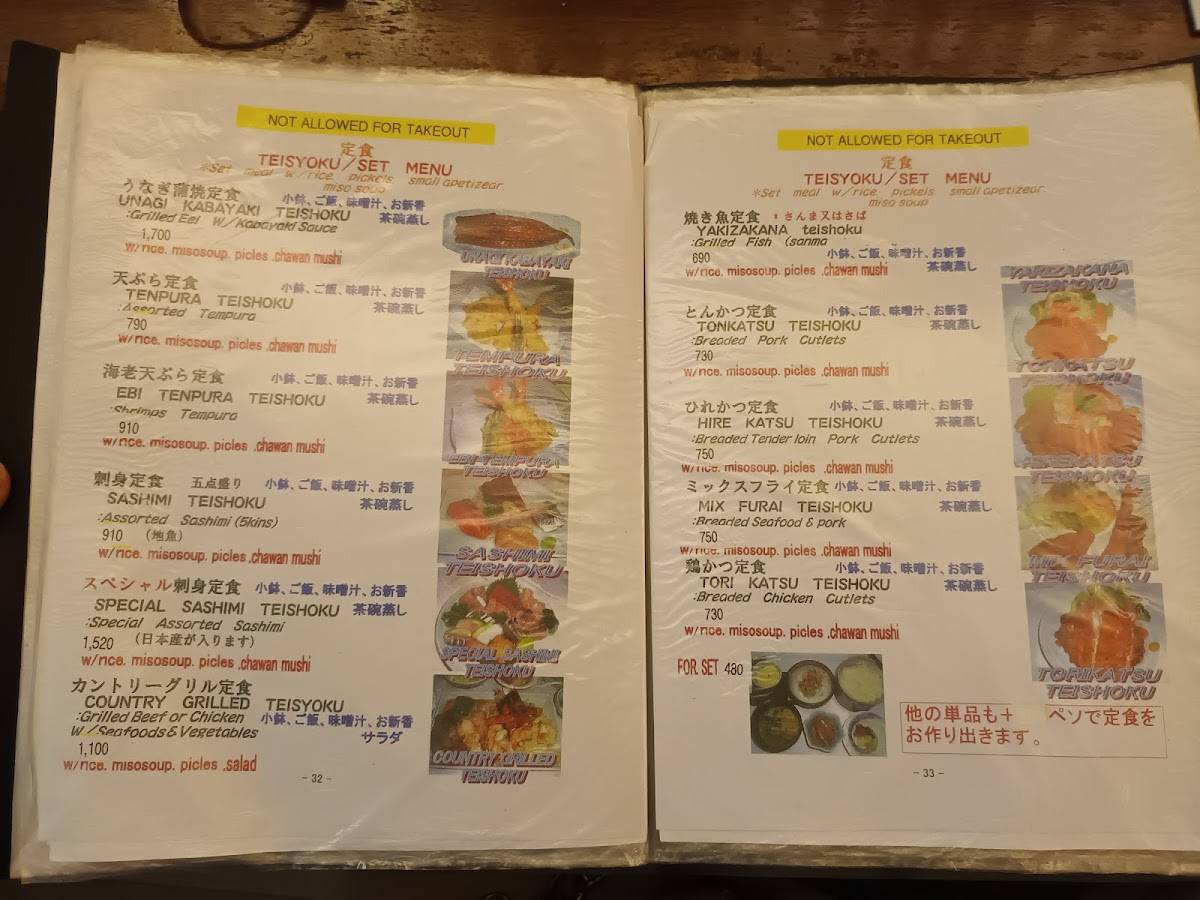 NOT ALLOWED FOR TAKEOUT
定食
TEISYOKU/SET MENU
※Set meal w/rice. pickels small apetizear.
miso soup
うなぎ蒲焼定食 小鉢、ご飯、味噌汁、お新香
UNAGI KABAYAKI TEISHOKU 茶碗蒸し
:Grilled Eel W/Kabayaki Sauce
1,700
w/rice. misosoup. picles .chawan mushi
UNAGI KABAYAKI
TEISHOKU
天ぷら定食 小鉢、ご飯、味噌汁、お新香
TENPURA TEISHOKU 茶碗蒸し
:Assorted Tempura
790
w/rice. misosoup. picles .chawan mushi
TEMPURA
TEISHOKU
海老天ぷら定食 小鉢、ご飯、味噌汁、お新香
EBI TENPURA TEISHOKU 茶碗蒸し
:Shrimps Tempura
910
w/rice. misosoup. picles .chawan mushi
EBI TEMPURA
TEISHOKU
刺身定食 五点盛り 小鉢、ご飯、味噌汁、お新香
SASHIMI TEISHOKU 茶碗蒸し
:Assorted Sashimi (5kins)
910 (地魚)
w/rice. misosoup. picles .chawan mushi
SASHIMI
TEISHOKU
スペシャル刺身定食 小鉢、ご飯、味噌汁、お新香
SPECIAL SASHIMI TEISHOKU 茶碗蒸し
:Special Assorted Sashimi
1,520 (日本産が入ります)
w/rice. misosoup. picles .chawan mushi
SPECIAL SASHIMI
TEISHOKU
カントリーグリル定食
COUNTRY GRILLED TEISYOKU
:Grilled Beef or Chicken 小鉢、ご飯、味噌汁、お新香
W/Seafoods & Vegetables サラダ
1,100
w/rice. misosoup. picles .salad
COUNTRY GRILLED
TEISHOKU
- 32 -
NOT ALLOWED FOR TAKEOUT
定食
TEISYOKU/SET MENU
※Set meal w/rice. pickels small apetizear.
miso soup
焼き魚定食 さんま又はさば
YAKIZAKANA teishoku
:Grilled Fish (sanma
690 小鉢、ご飯、味噌汁、お新香
w/rice. misosoup. picles .chawan mushi 茶碗蒸し
YAKIZAKANA
TEISHOKU
とんかつ定食 小鉢、ご飯、味噌汁、お新香
TONKATSU TEISHOKU 茶碗蒸し
:Breaded Pork Cutlets
730
w/rice. misosoup. picles .chawan mushi
TONKATSU
TEISHOKU
ひれかつ定食 小鉢、ご飯、味噌汁、お新香
HIRE KATSU TEISHOKU 茶碗蒸し
:Breaded Tender loin Pork Cutlets
750
w/rice. misosoup. picles .chawan mushi
TEISHOKU
ミックスフライ定食 小鉢、ご飯、味噌汁、お新香
MIX FURAI TEISHOKU 茶碗蒸し
:Breaded Seafood & pork
750
w/rice. misosoup. picles .chawan mushi
MIX FURAI
TEISHOKU
鶏かつ定食 小鉢、ご飯、味噌汁、お新香
TORI KATSU TEISHOKU 茶碗蒸し
:Breaded Chicken Cutlets
730
w/rice. misosoup. picles .chawan mushi
TORIKATSU
TEISHOKU
FOR SET 480
他の単品も+ ペソで定食を
お作り出きます。
- 33 -